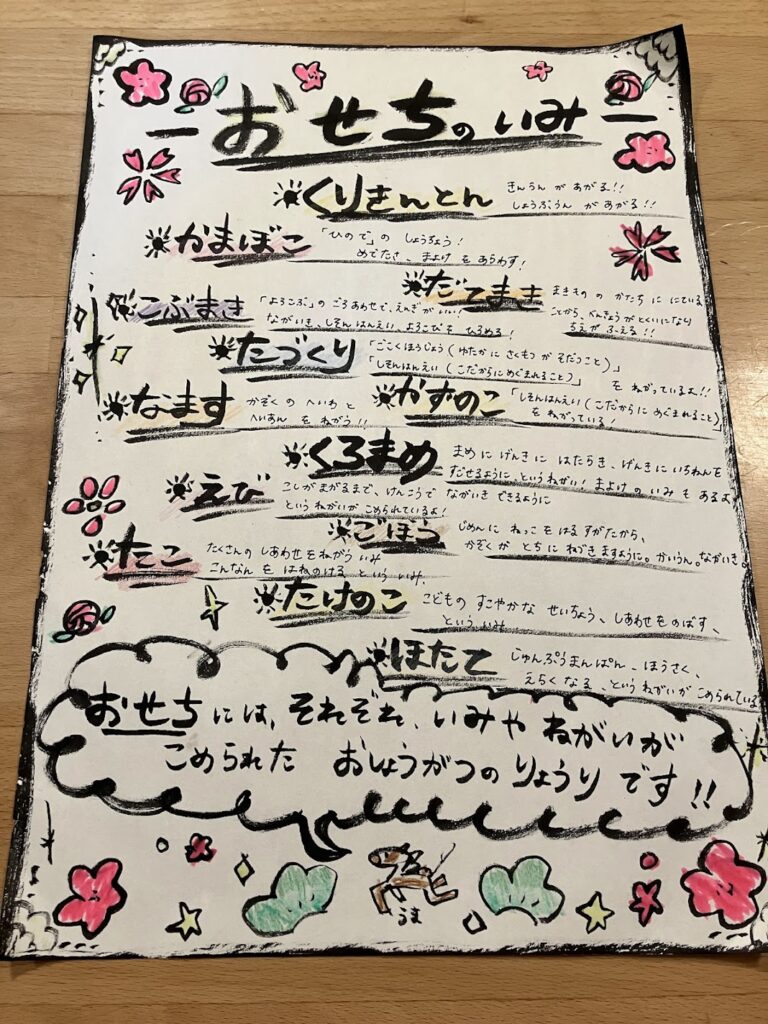 ー おせちのいみ ー
くりきんとん
きんうん が あがる!!
しょうぶうん が あがる!!
かまぼこ
「ひので」の しょうちょう!
めでたさ、まよけ を あらわす!
だてまき
まきもの の かたち に にている
ことから、べんきょう が とくいになり
ちえが ふえる!!
こぶまき
「よろこぶ」の ごろあわせで、えんぎ が いい!
ながいき、しそんはんえい、よろこびを ひろめる!
たづくり
「ごこくほうじょう(ゆたかに さくもつ が そだつこと)」
「しそんはんえい(こだからに めぐまれること)」
を ねがっているよ!!
なます
かぞく の へいわ と
へいあん を ねがう!!
かずのこ
「しそんはんえい(こだからに めぐまれること)」
を ねがっている!
くろまめ
まめ に げんき に はたらき、げんきに いちねんを
すごせるように、という ねがい! まよけ の いみ も あるよ
えび
こしが まがるまで、けんこうで ながいき できるように
という ねがいが こめられているよ!
ごぼう
じめんに ねっこ を はる すがたから、
かぞく が とち に ねづきますように。かいうん。ながいき。
たこ
たくさんの しあわせをねがう いみ
こんなん を はねのける という いみ、
たけのこ
こどもの すこやかな せいちょう、しあわせを のばす、
という いみ
ほたて
じゅんぷうまんぱん、ほうさく、
えらくなる、というねがいが こめられている
おせちには、それぞれ、いみや ねがいが
こめられた おしょうがつの りょうり です!!
うま